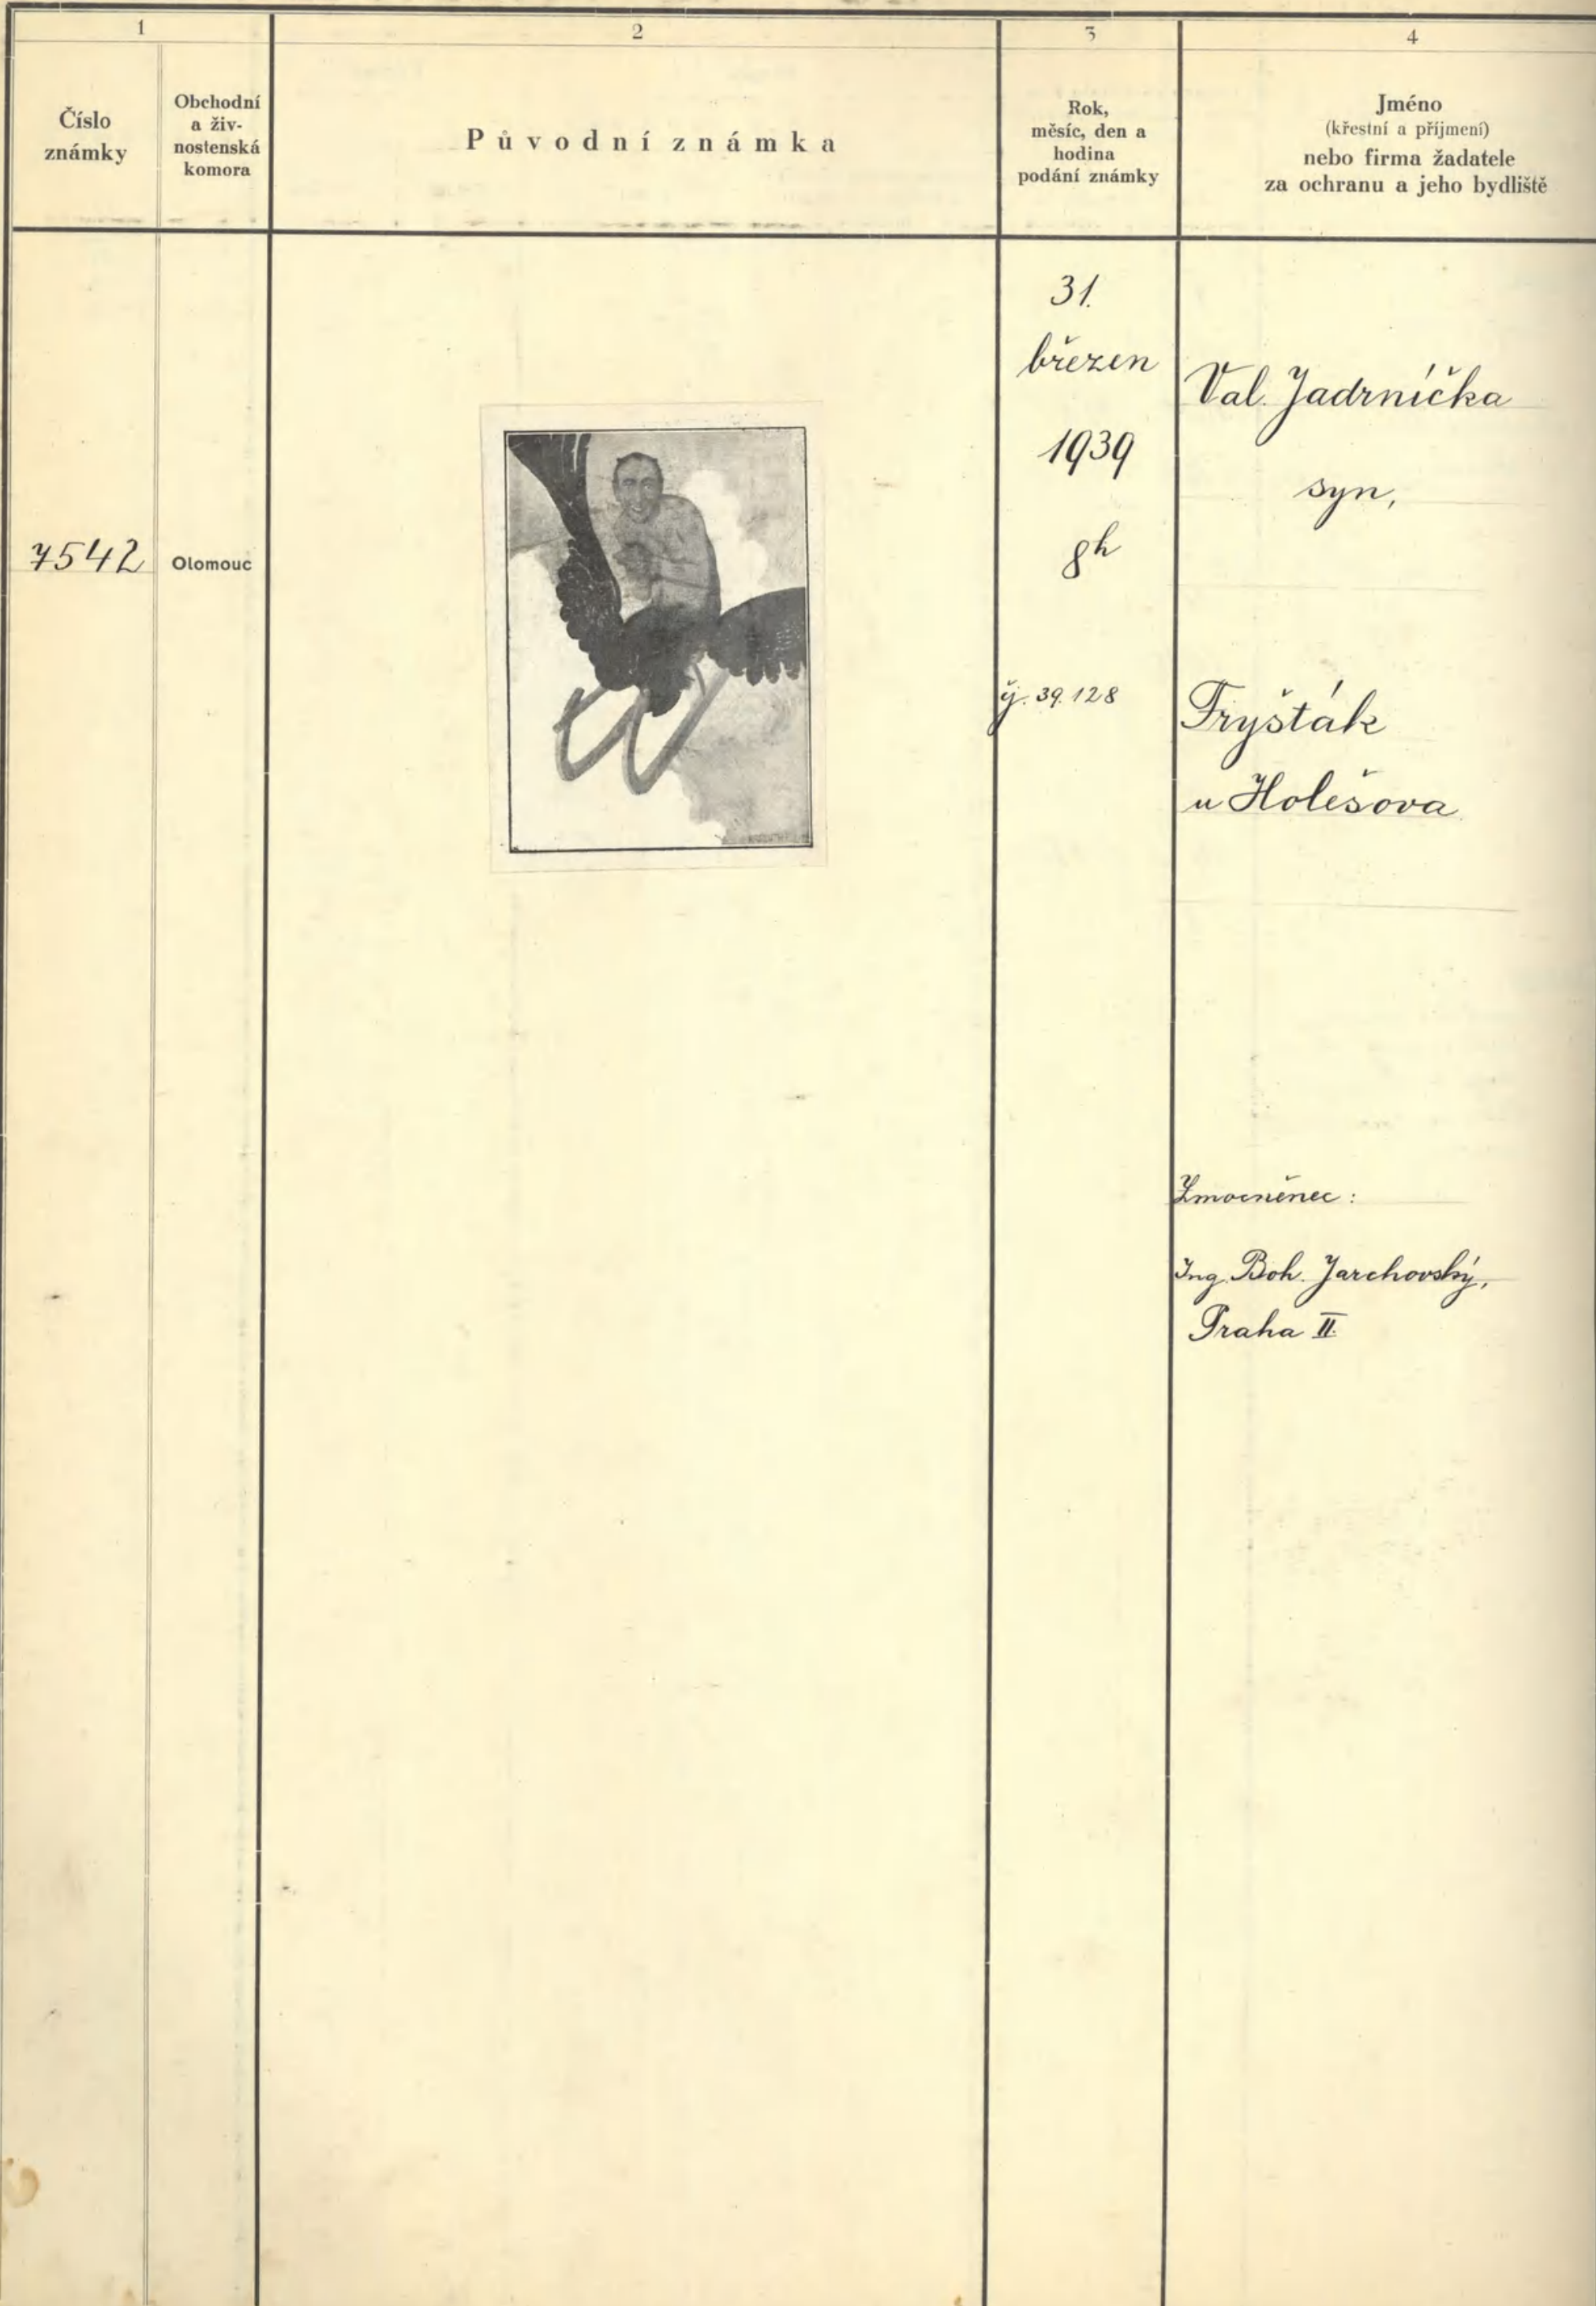 1
2
3
4
Číslo
známky
Obchodní
a živ-
nostenská
komora
Původní známka
Rok,
měsíc, den a
hodina
podání známky
Jméno
(křestní a příjmení)
nebo firma žadatele
za ochranu a jeho bydliště
7542
Olomouc
31.
březen
1939
8h
čj. 39.128
Val. Jadrníčka
syn,
Fryšták
u Holešova
Zmocněnec:
Ing. Boh. Jarchovský,
Praha II.